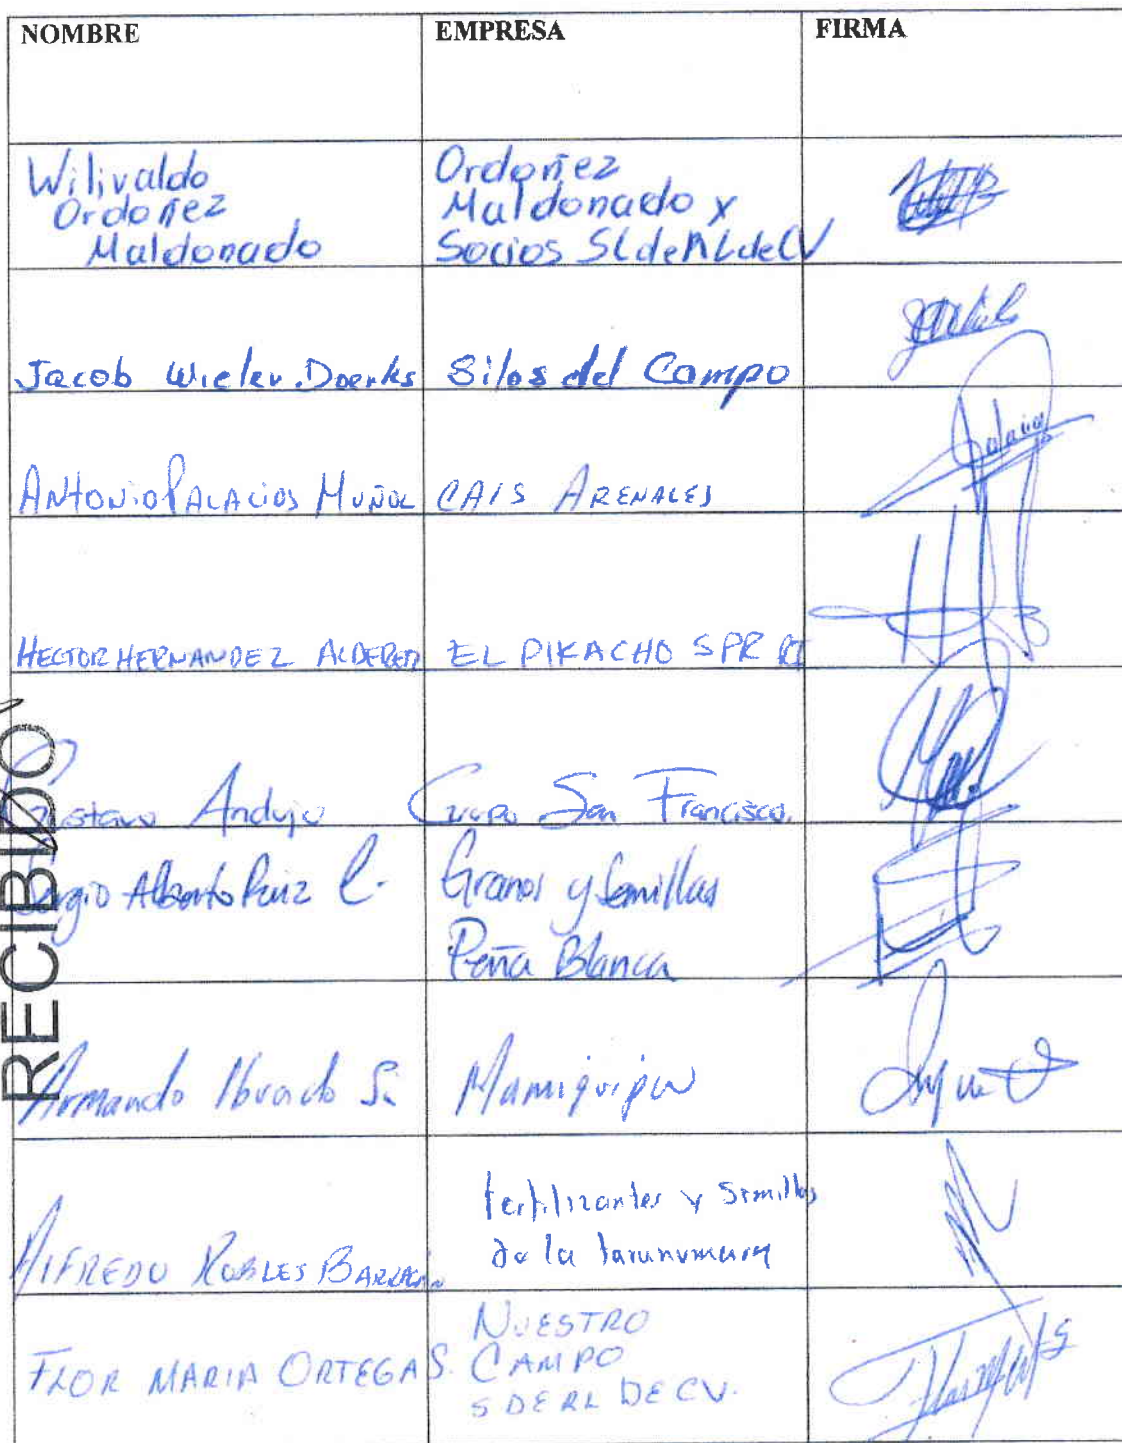 NOMBRE EMPRESA FIRMA
Wilivaldo
Ordoñez
Maldonado
Ordoñez
Maldonado y
Socios
Jacob Wieler Doerks Silos del Campo
ANTONIO PALACIOS MUÑOZ CAIS ARENALES
HECTOR HERNANDEZ EL PIKACHO SPR RI
Gustavo Andujo Grupo San Francisco.
Sergio Alberto Ruiz C.
Granos y Semillas
Peña Blanca
Armando
Namiquipa
ALFREDO ROBLES BARRAGÁN
fertilizantes y Semillas
de la tarahumara
FLOR MARIA ORTEGA S.
NUESTRO
CAMPO
S DE RL DE CV.
RECIBIDO